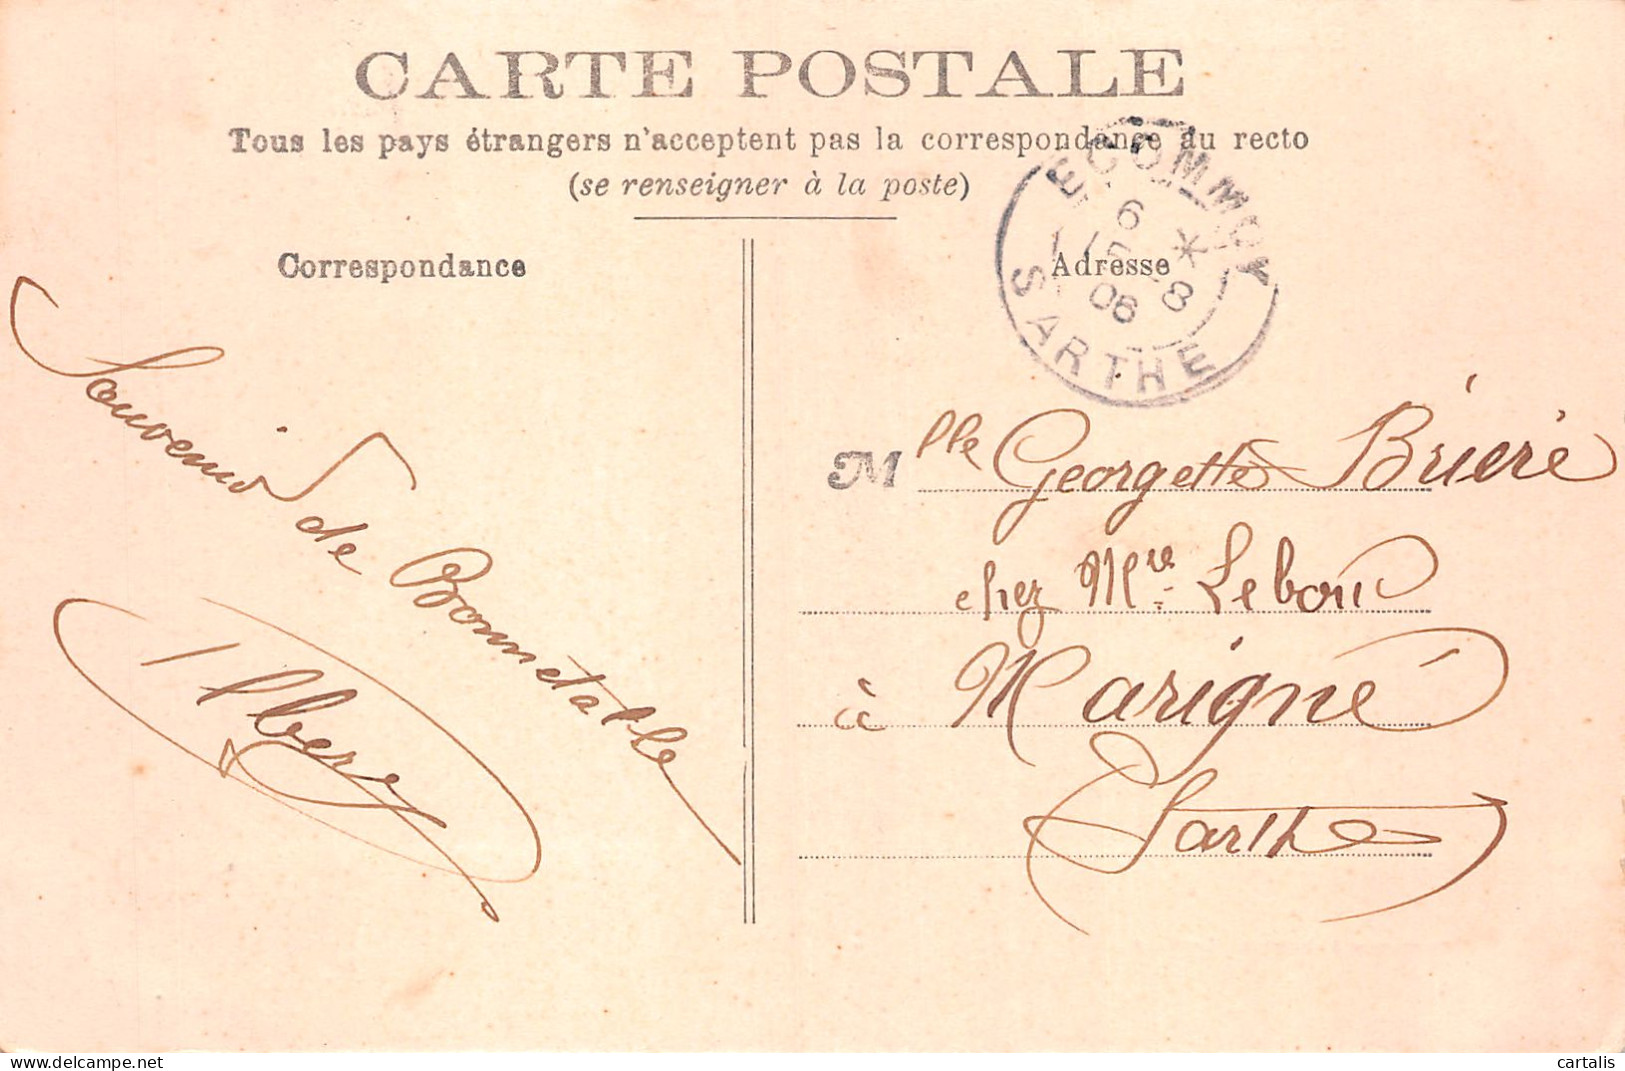 CARTE POSTALE
Tous les pays étrangers n'acceptent pas la correspondance au recto
(se renseigner à la poste)
Correspondance
Adresse
ECOMMOY
6 *
15 -8
06
SARTHE
Souvenir de Bonnetable
Albert
Mlle Georgette Brière
chez Mre
à Marigné
Sarthe
cartalis